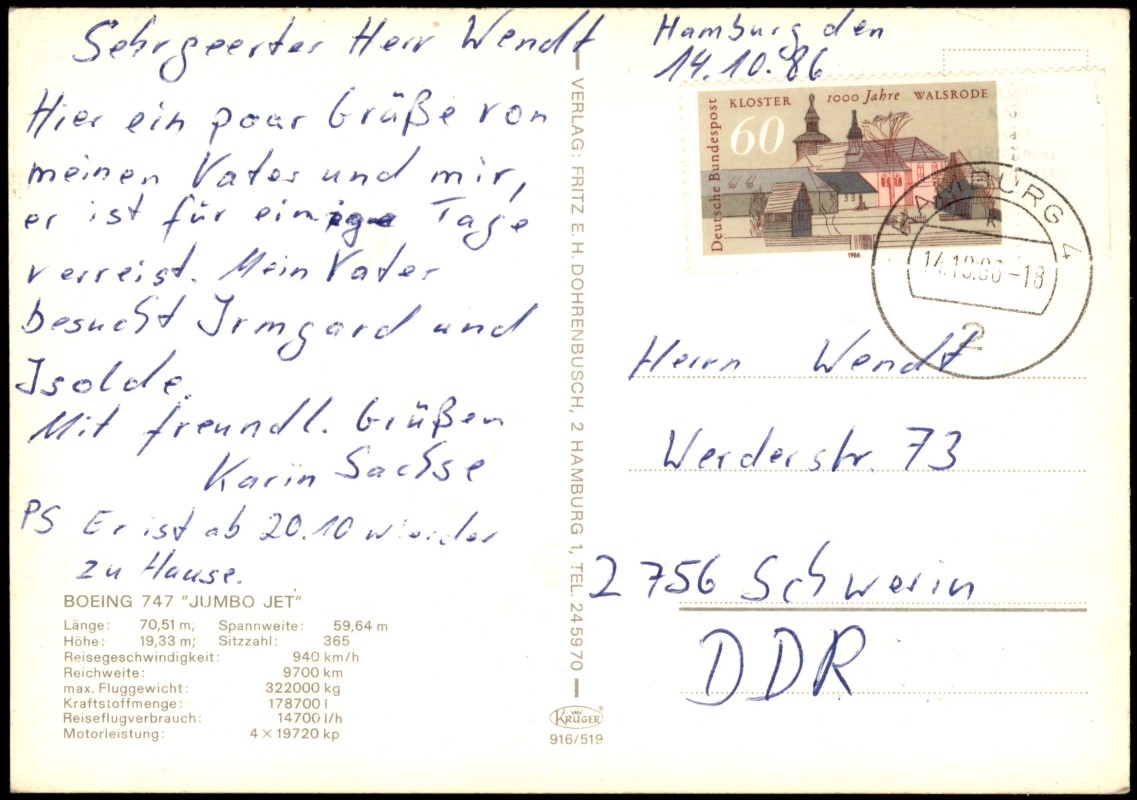 Sehrgeerter Herr Wendt
Hier ein paar Grüße von
meinen Vater und mir,
er ist für einige Tage
verreist. Mein Vater
besucht Irmgard und
Isolde.
Mit freundl. Grüßen
Karin Sachse
PS Er ist ab 20.10 wieder
zu Hause.
BOEING 747 "JUMBO JET"
Länge: 70,51 m; Spannweite: 59,64 m
Höhe: 19,33 m; Sitzzahl: 365
Reisegeschwindigkeit: 940 km/h
Reichweite: 9700 km
max. Fluggewicht: 322000 kg
Kraftstoffmenge: 178700 l
Reiseflugverbrauch: 14700 l/h
Motorleistung: 4 × 19720 kp
VERLAG: FRITZ E. H. DOHRENBUSCH, 2 HAMBURG 1, TEL. 245970
KRÜGER
916/519
Hamburg den
14.10.86
KLOSTER 1000 Jahre WALSRODE
60
Deutsche Bundespost
1986
HAMBURG 4
k
14.10.86-18
2
Herrn Wendt
Werderstr. 73
2756 Schwerin
DDR